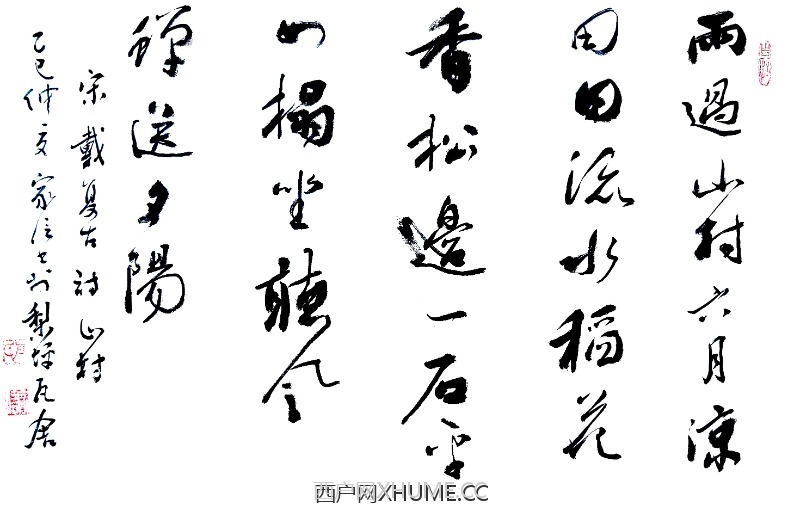 雨過山村六月涼
田田流水稻花
香松邊一石平
如榻坐聽風
蟬送夕陽
宋戴复古詩山村
乙巳仲夏家信书於梨坪瓦舍
西户网XHUME.CC